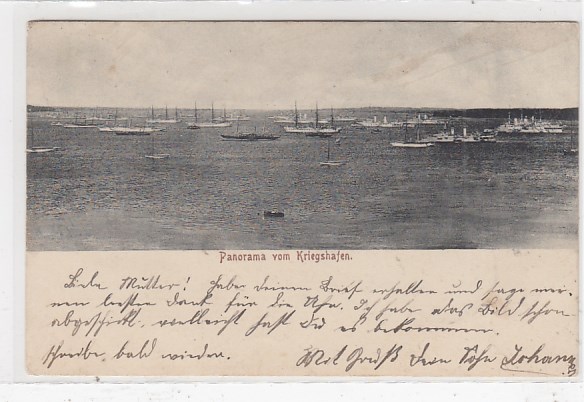 Panorama vom Kriegshafen.
Liebe Mutter! Habe deinen Brief erhalten und sage mei-
nen besten Dank für die Uhr. Ich habe das Bild schon
abgeschickt, vielleicht hast du es bekommen.
schreibe bald wieder. Mit Gruß Dein Sohn Johannes